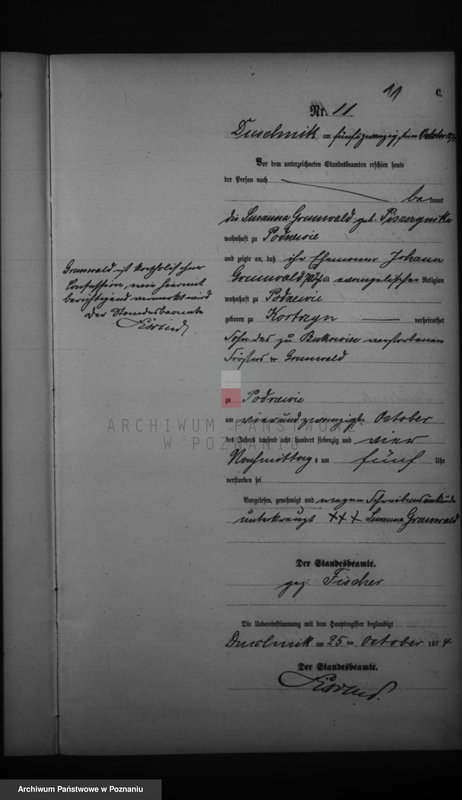 11
C.
Nr. 11.
Duschnik am fünfundzwanzigsten October 187
Vor dem unterzeichneten Standesbeamten erschien heute
der Person nach
be kannt
die Susanna Grunwald geb.
wohnhaft zu Podrzewie
und zeigte an, daß ihr Ehemann Johann
Grunwald evangelischer Religion
wohnhaft zu Podrzewie
geboren zu verheirathet
Sohn des zu verstorbenen
Försters Grunwald
zu Podrzewie
am vierundzwanzigst. October
des Jahres tausend acht hundert siebenzig und vier
Nachmittags um fünf Uhr
verstorben sei
Vorgelesen, genehmigt und wegen Schreibensunkunde
unterkreuzt +++ Susanna Grunwald
Der Standesbeamte.
gez. Fischer
Die Uebereinstimmung mit dem Hauptregister beglaubigt
Duschnik am 25 ten October 187 4
Der Standesbeamte.
Grunwald ist katholischer
Confession, was hiermit
berichtigend vermerkt wird
Der Standesbeamte
ARCHIWUM PAŃSTWOWE
W POZNANIU
Archiwum Państwowe w Poznaniu